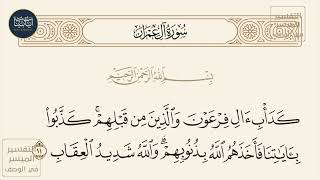 سُورَةُ آلِ عِمْرَانَ
بِسْمِ اللَّهِ الرَّحْمَٰنِ الرَّحِيمِ
كَدَأْبِ ءَالِ فِرْعَوْنَ وَالَّذِينَ مِن قَبْلِهِمْ ۚ كَذَّبُوا۟
بِـَٔايَـٰتِنَا فَأَخَذَهُمُ اللَّهُ بِذُنُوبِهِمْ ۗ وَاللَّهُ شَدِيدُ الْعِقَابِ
١١
التفسير
الميسر
في الوصف